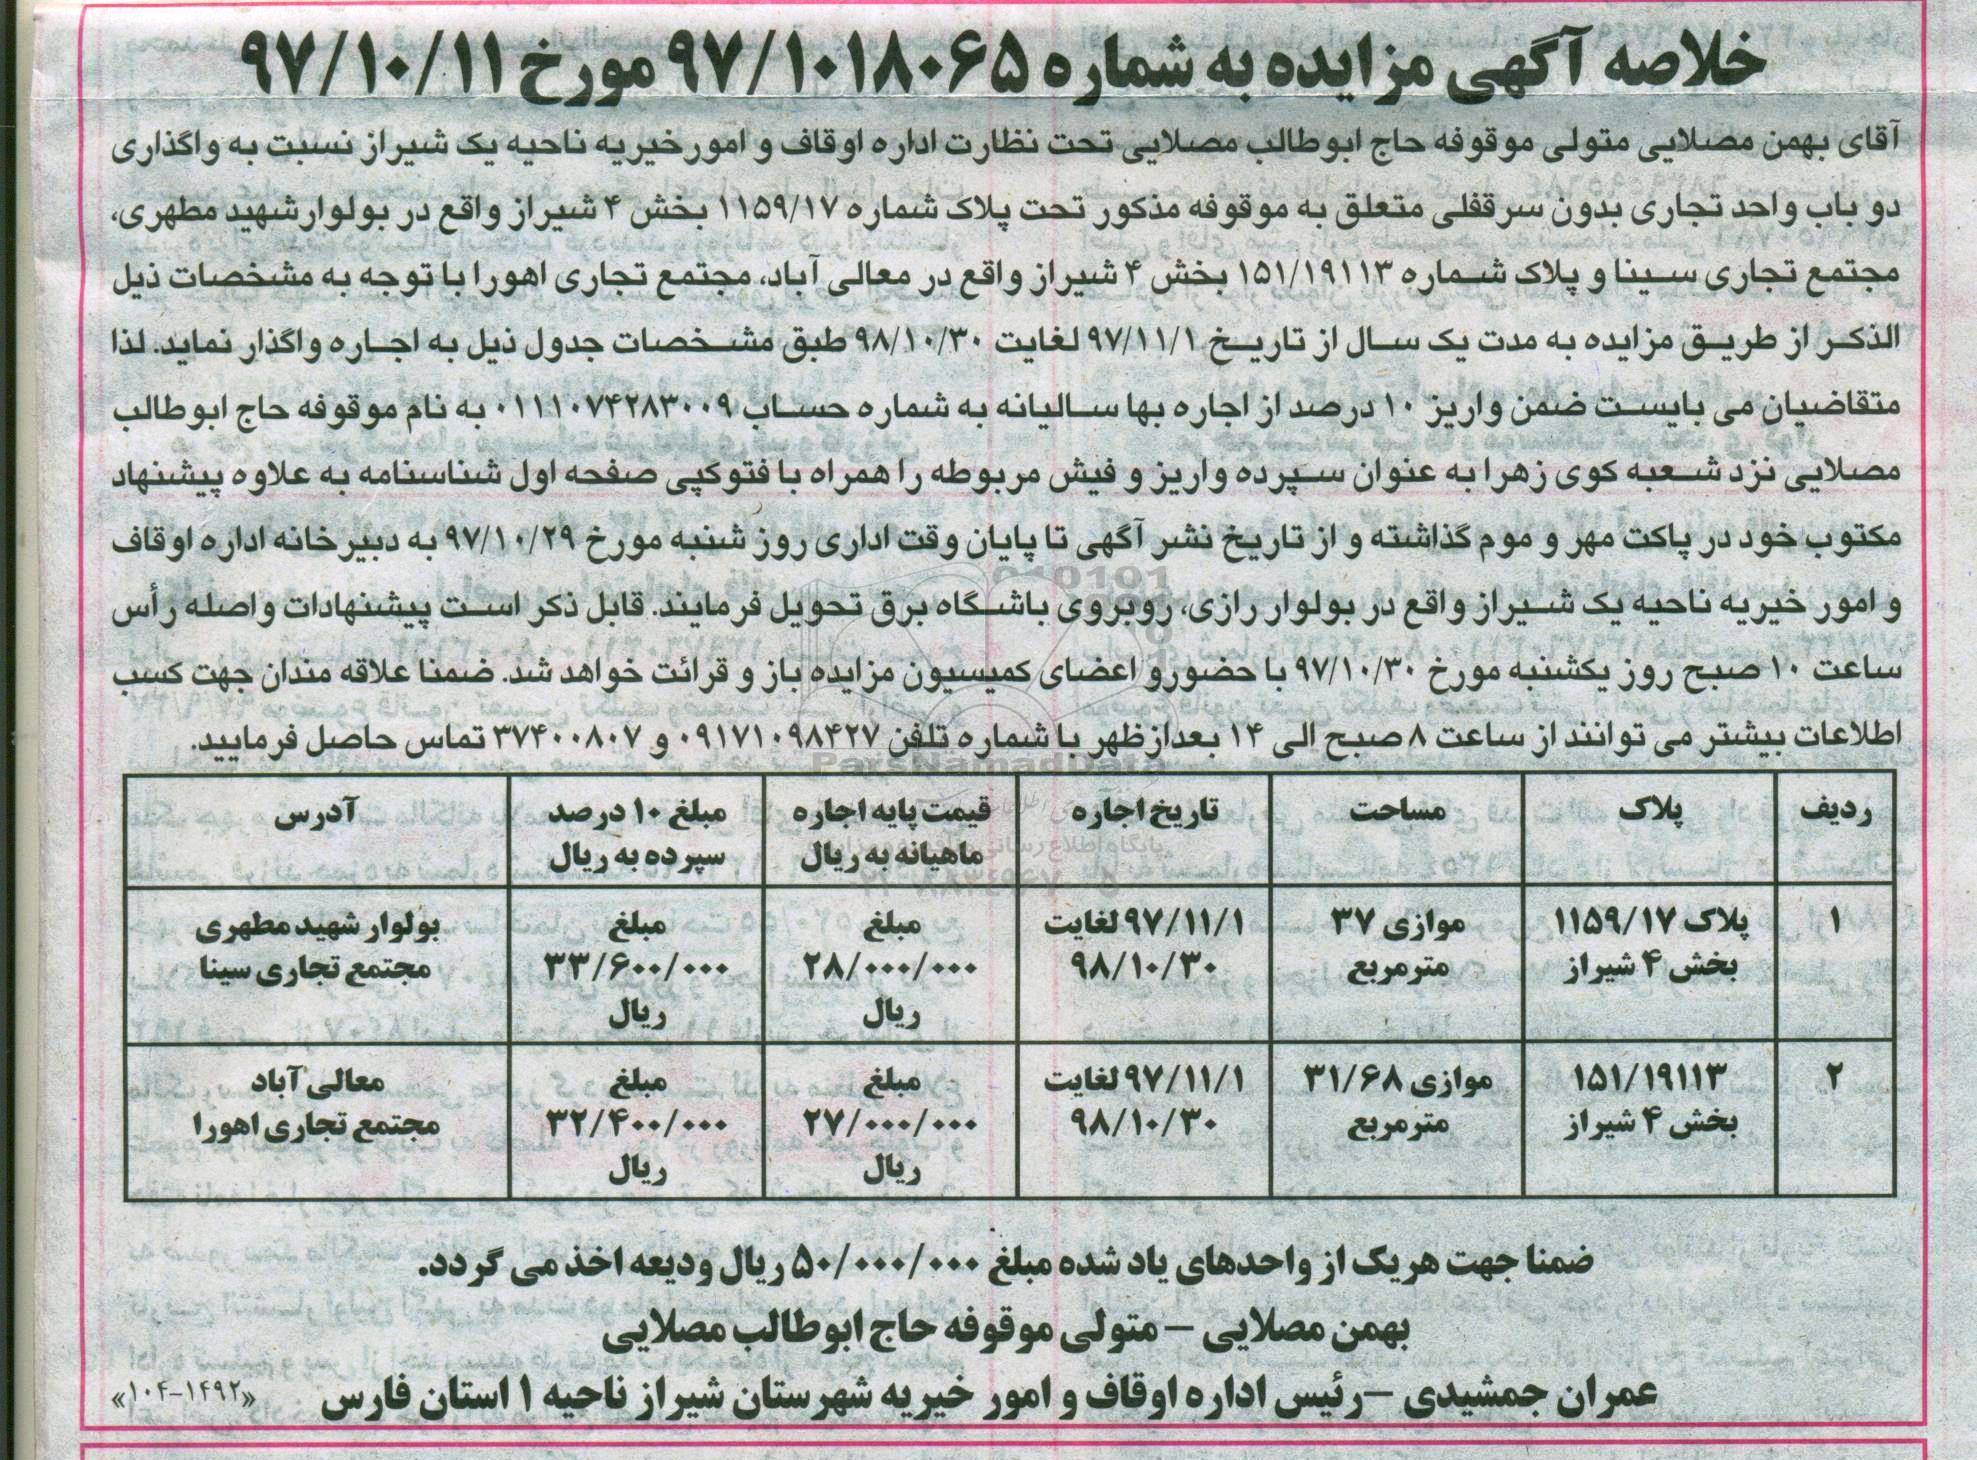 خلاصه آگهی مزایده به شماره ۹۷/۱۰۱۸۰۶۵ مورخ ۹۷/۱۰/۱۱
آقای بهمن مصلایی متولی موقوفه حاج ابوطالب مصلایی تحت نظارت اداره اوقاف و امورخیریه ناحیه یک شیراز نسبت به واگذاری
دو باب واحد تجاری بدون سرقفلی متعلق به موقوفه مذکور تحت پلاک شماره ۱۱۵۹/۱۷ بخش ۴ شیراز واقع در بولوارشهید مطهری،
مجتمع تجاری سینا و پلاک شماره ۱۵۱/۱۹۱۱۳ بخش ۴ شیراز واقع در معالی آباد، مجتمع تجاری اهورا با توجه به مشخصات ذیل
الذکر از طریق مزایده به مدت یک سال از تاریخ ۹۷/۱۱/۱ لغایت ۹۸/۱۰/۳۰ طبق مشخصات جدول ذیل به اجاره واگذار نماید. لذا
متقاضیان می بایست ضمن واریز ۱۰ درصد از اجاره بها سالیانه به شماره حساب ۰۱۱۱۰۷۴۲۸۳۰۰۹ به نام موقوفه حاج ابوطالب
مصلایی نزد شعبه کوی زهرا به عنوان سپرده واریز و فیش مربوطه را همراه با فتوکپی صفحه اول شناسنامه به علاوه پیشنهاد
مکتوب خود در پاکت مهر و موم گذاشته و از تاریخ نشر آگهی تا پایان وقت اداری روز شنبه مورخ ۹۷/۱۰/۲۹ به دبیرخانه اداره اوقاف
و امور خیریه ناحیه یک شیراز واقع در بولوار رازی، روبروی باشگاه برق تحویل فرمایند. قابل ذکر است پیشنهادات واصله رأس
ساعت ۱۰ صبح روز یکشنبه مورخ ۹۷/۱۰/۳۰ با حضورو اعضای کمیسیون مزایده باز و قرائت خواهد شد. ضمنا علاقه مندان جهت کسب
اطلاعات بیشتر می توانند از ساعت ۸ صبح الی ۱۴ بعدازظهر با شماره تلفن ۰۹۱۷۱۰۹۸۴۲۷ و ۳۷۴۰۰۸۰۷ تماس حاصل فرمایید.
ردیف پلاک مساحت تاریخ اجاره قیمت پایه اجاره مبلغ ۱۰ درصد آدرس
ماهیانه به ریال سپرده به ریال
۱ پلاک ۱۱۵۹/۱۷ موازی ۳۷ ۹۷/۱۱/۱ لغایت مبلغ مبلغ بولوار شهید مطهری
بخش ۴ شیراز مترمربع ۹۸/۱۰/۳۰ ۲۸/۰۰۰/۰۰۰ ۳۳/۶۰۰/۰۰۰ مجتمع تجاری سینا
ریال ریال
۲ ۱۵۱/۱۹۱۱۳ موازی ۳۱/۶۸ ۹۷/۱۱/۱ لغایت مبلغ مبلغ معالی آباد
بخش ۴ شیراز مترمربع ۹۸/۱۰/۳۰ ۲۷/۰۰۰/۰۰۰ ۳۲/۴۰۰/۰۰۰ مجتمع تجاری اهورا
ریال ریال
ضمنا جهت هریک از واحدهای یاد شده مبلغ ۵۰/۰۰۰/۰۰۰ ریال ودیعه اخذ می گردد.
بهمن مصلایی – متولی موقوفه حاج ابوطالب مصلایی
عمران جمشیدی –رئیس اداره اوقاف و امور خیریه شهرستان شیراز ناحیه ۱ استان فارس «۱۰۴-۱۴۹۲»
ParsNamadData